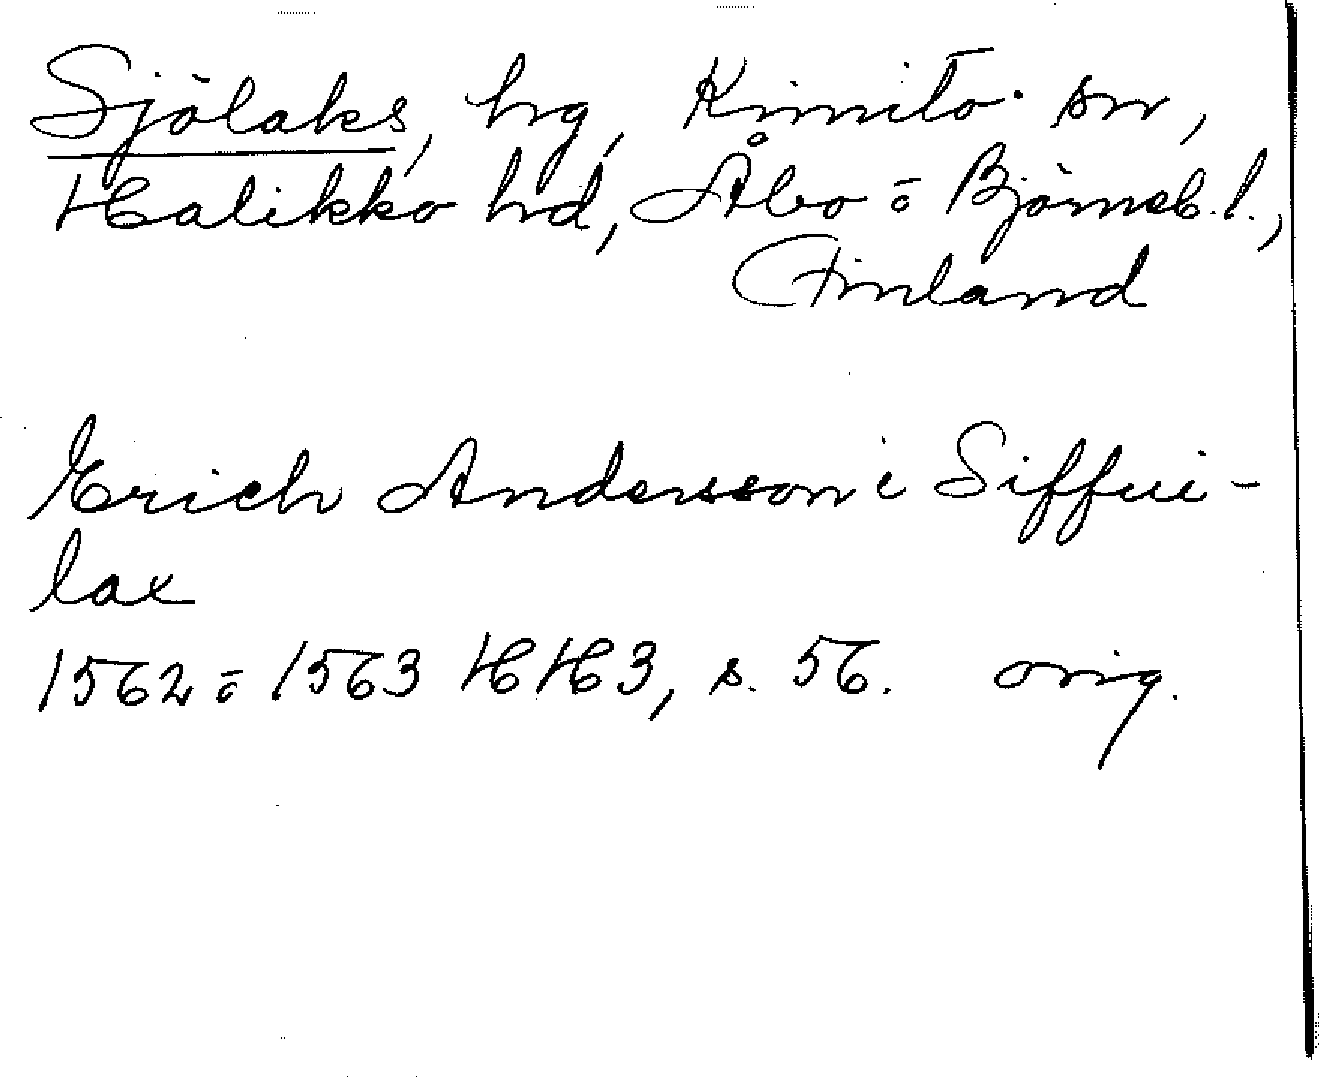 Sjölaks, hg, Kimito sn,
Halikko hd, Åbo o Björneb. l.,
Finland
Erich Andersson i Siffui-
lax
1562 o 1563 HH3, s. 56. orig.